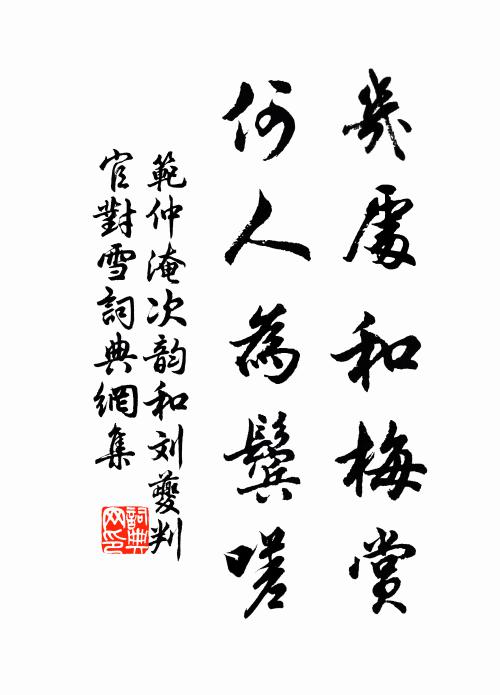 幾處和梅賞
何人為鬢嗟
範仲淹次韵和刘夔判
官對雪詞典網集
詞典
网印